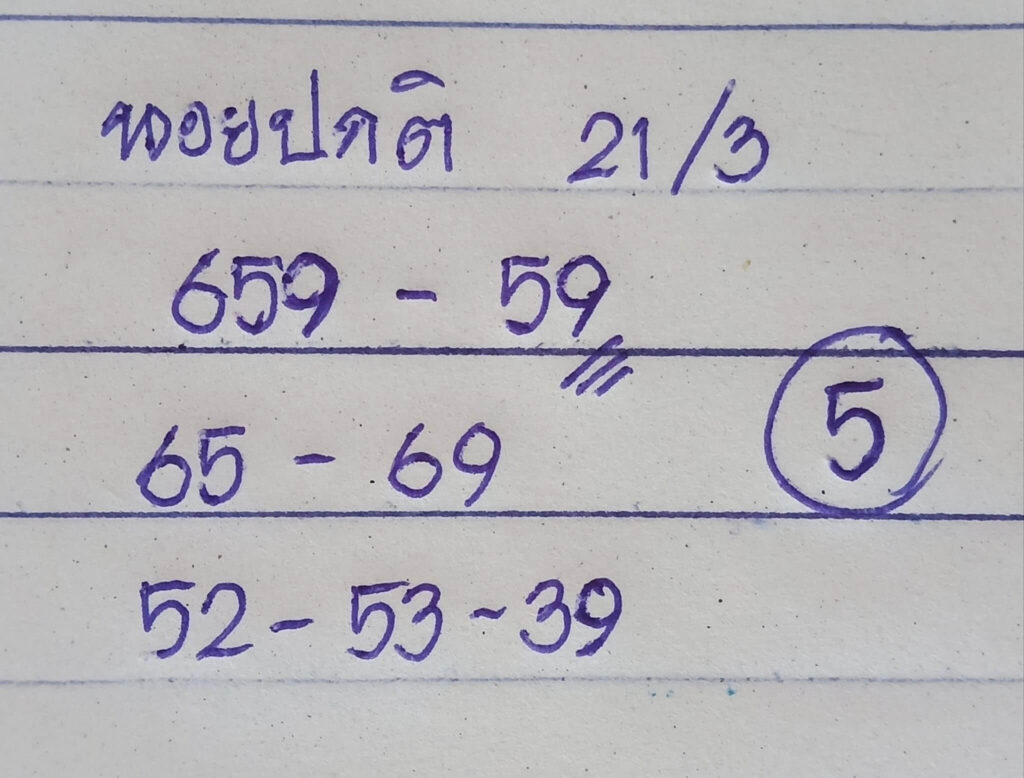 หอยปกติ 21/3
659 - 59
5
65 - 69
52 - 53 - 39